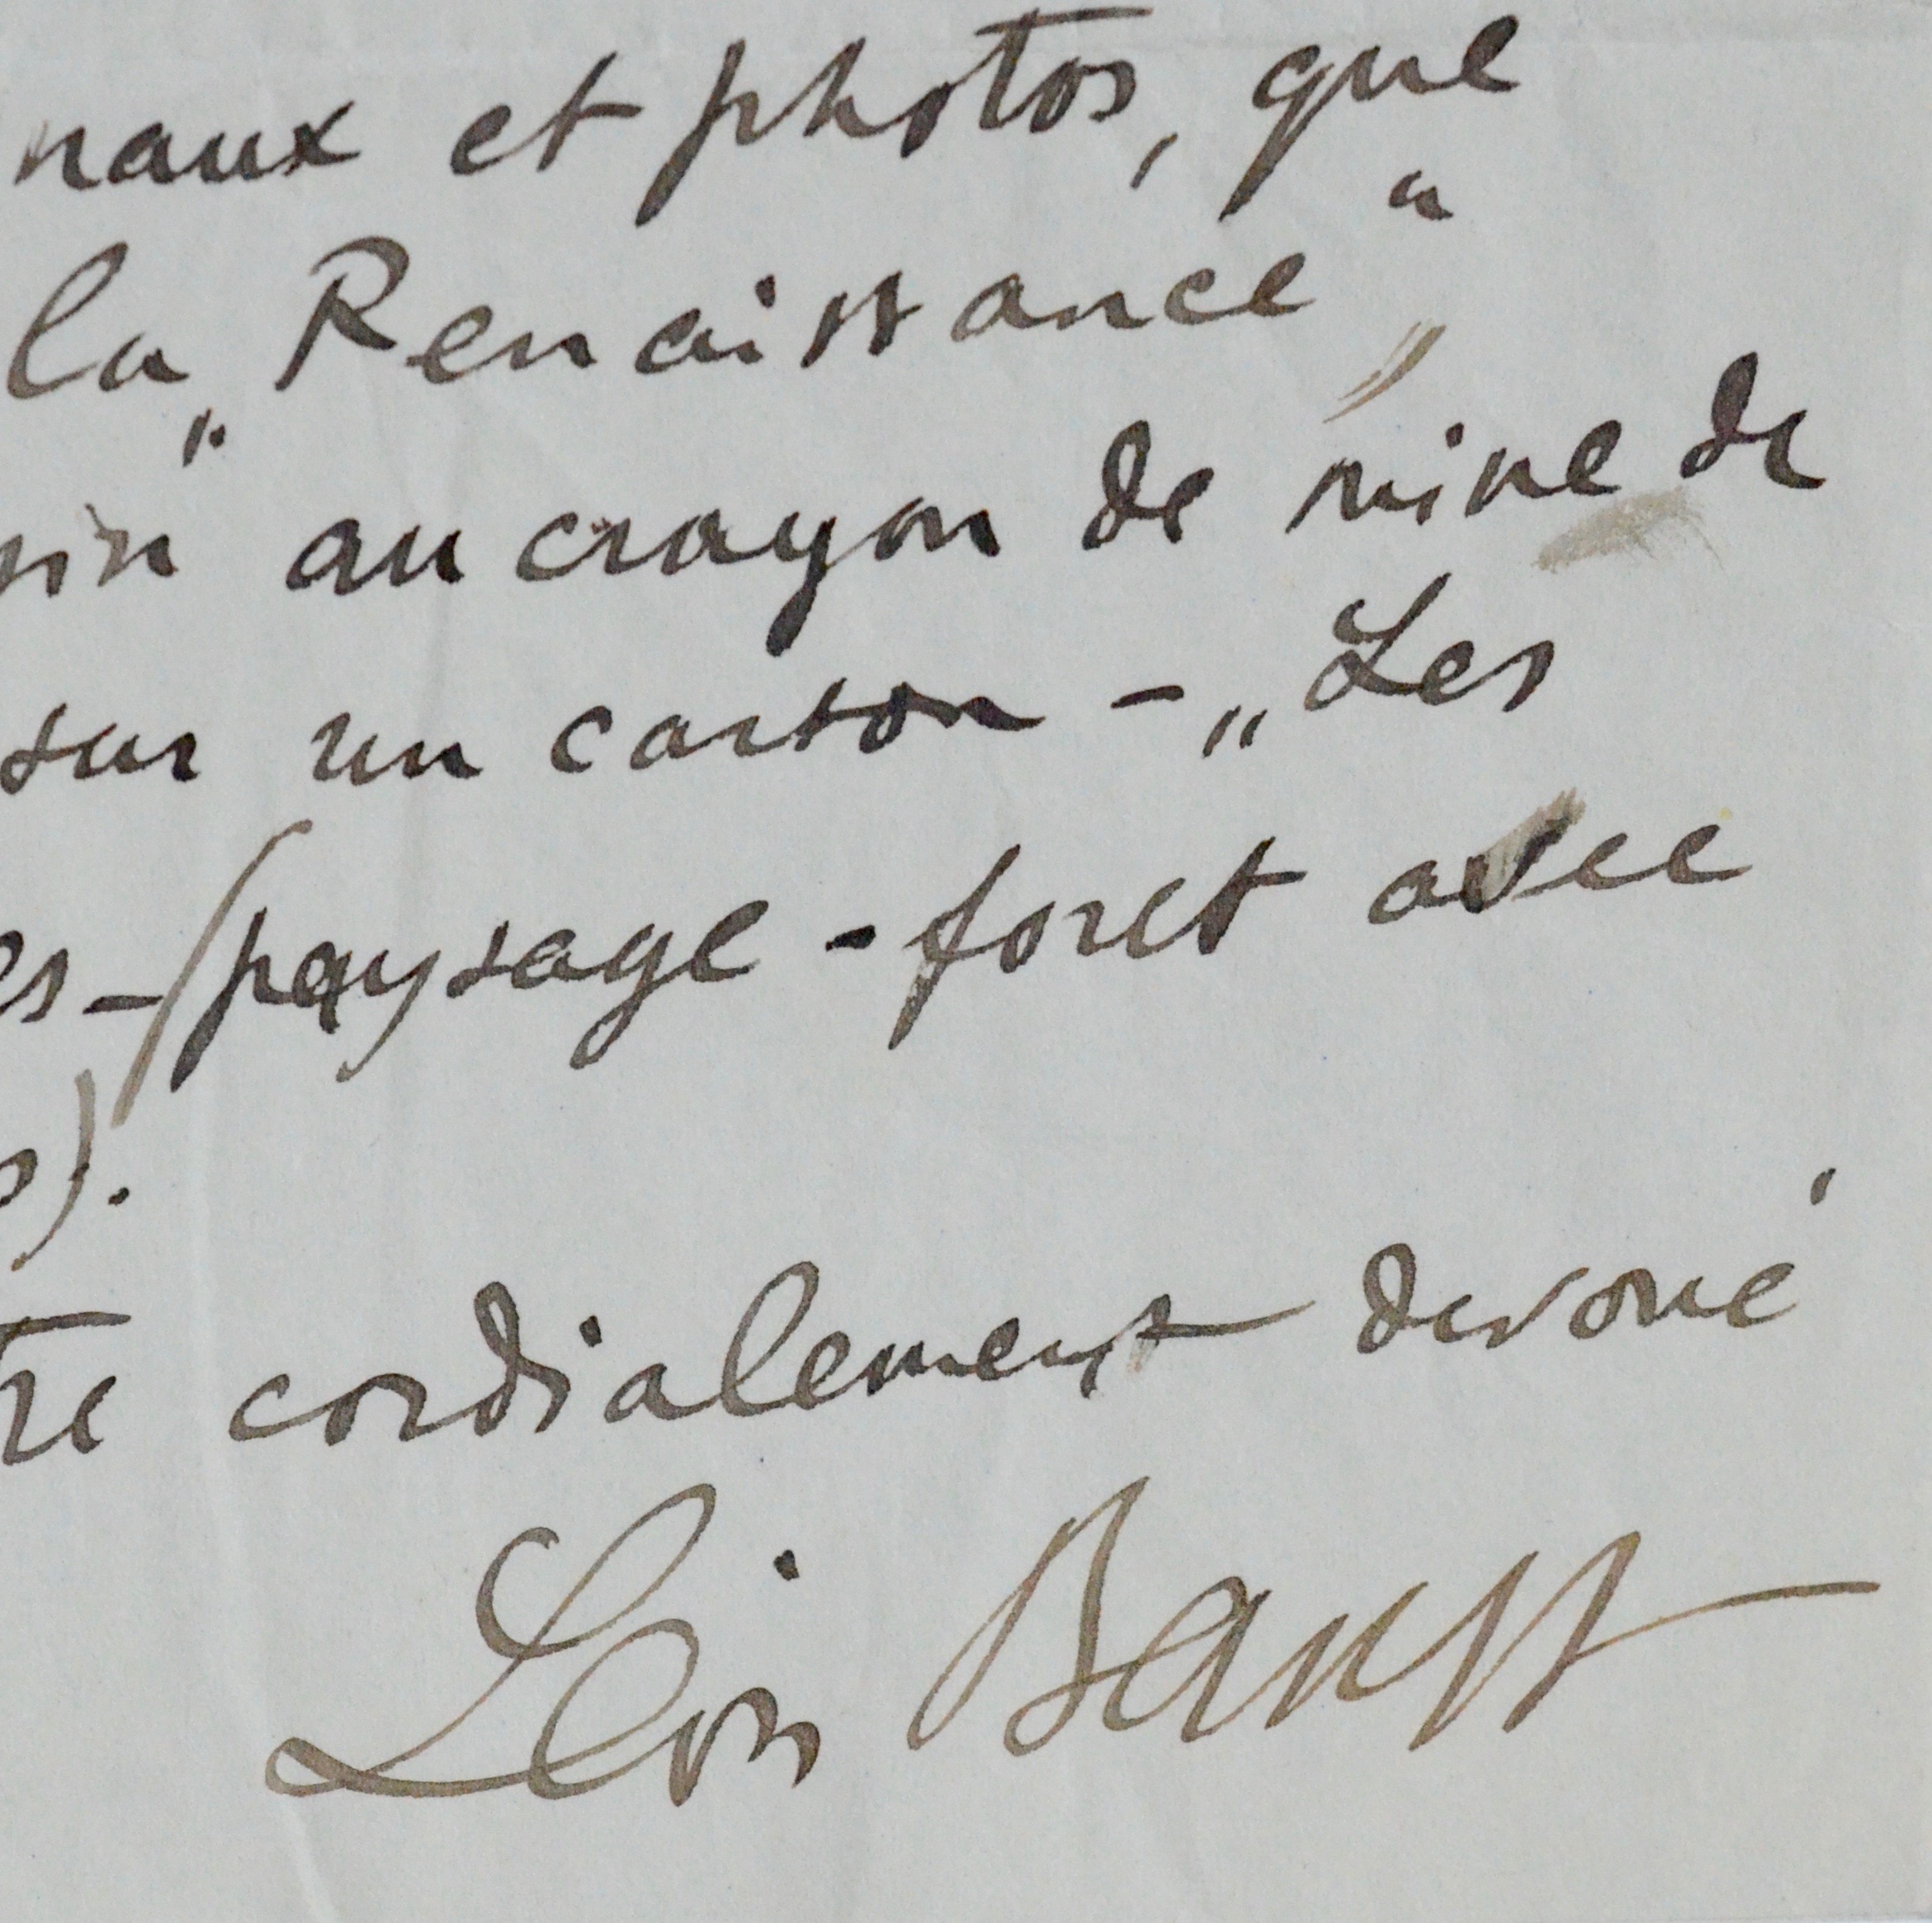 naux et photos, que
la „Renaissance“
sin au crayon de mine de
sur un carton – „Les
es – (paysage - foret avec
s).
tre cordialement devoué
Léon Bakst